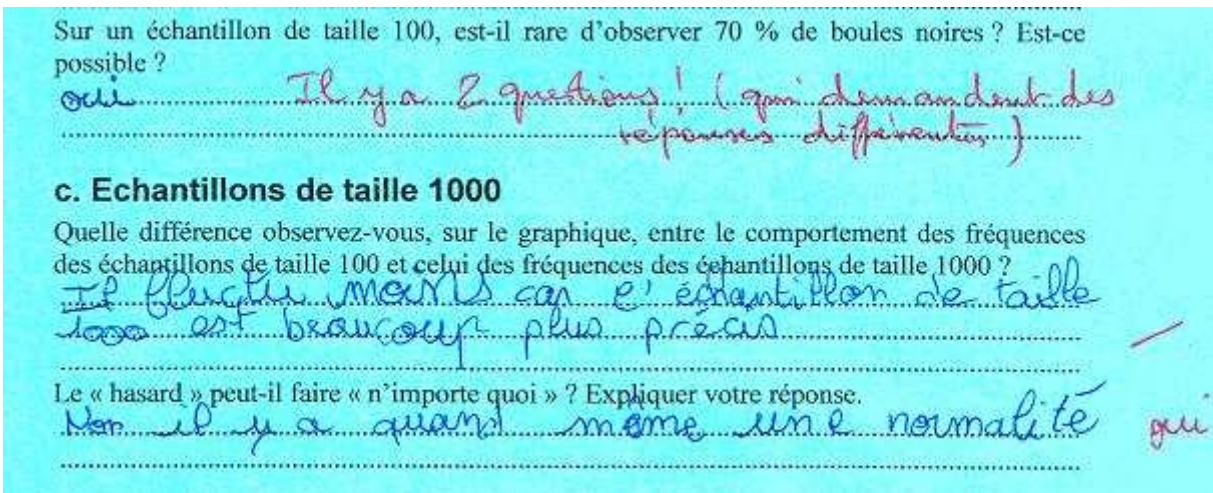 Sur un échantillon de taille 100, est-il rare d'observer 70 % de boules noires ? Est-ce
possible ?
oui Il y a 2 questions ! (qui demandent des
réponses différentes)
c. Echantillons de taille 1000
Quelle différence observez-vous, sur le graphique, entre le comportement des fréquences
des échantillons de taille 100 et celui des fréquences des échantillons de taille 1000 ?
Il fluctu moins car l'échantillon de taille
1000 est beaucoup plus précis
Le « hasard » peut-il faire « n'importe quoi » ? Expliquer votre réponse.
Non il y a quand même une normalité oui